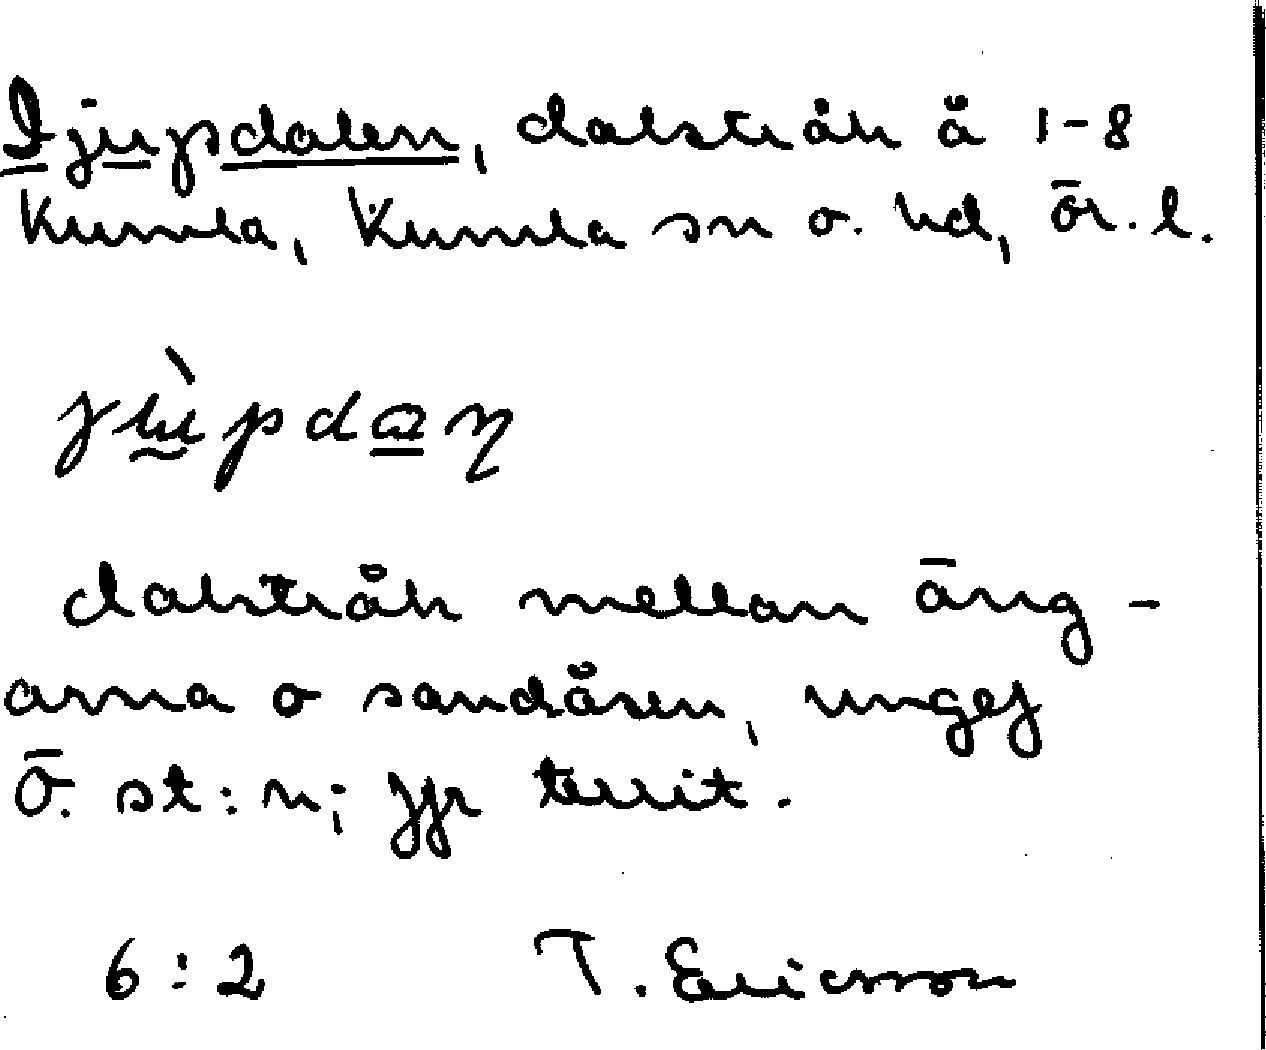 Djupdalen, dalstråk å 1-8
Kumla, Kumla sn o. hd, Ör. l.
jùpdaɳ
dalstråk mellan äng-
arna o sandåsen, ungef
Ö. st:n; jfr territ.
6:2 T. Ericsson